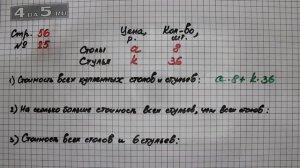 4 de 5.ru
Стр. 56
№ 25
Цена, Кол-во,
р. шт.
Столы a 8
Стулья k 36
1) Стоимость всех купленных столов и стульев: a·8+k·36
2) На сколько больше стоимость всех стульев, чем всех столов:
3) Стоимость всех столов и 6 стульев: